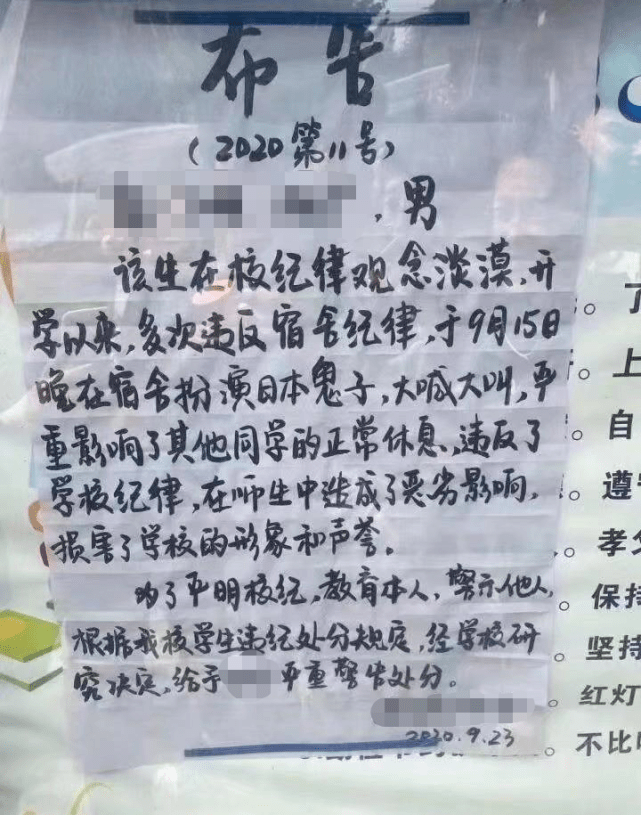 布告
（2020第11号）
，男
该生在校纪律观念淡漠，开
学以来，多次违反宿舍纪律，于9月15日
晚在宿舍扮演日本鬼子，大喊大叫，严
重影响了其他同学的正常休息，违反了
学校纪律，在师生中造成了恶劣影响，
损害了学校的形象和声誉。
为了严明校纪，教育本人，警示他人，
根据我校学生违纪处分规定，经学校研
究决定，给予 严重警告处分。
2020.9.23
了
。上
。自
。遵守
。孝父
。保持
。坚持
。红灯
。不比